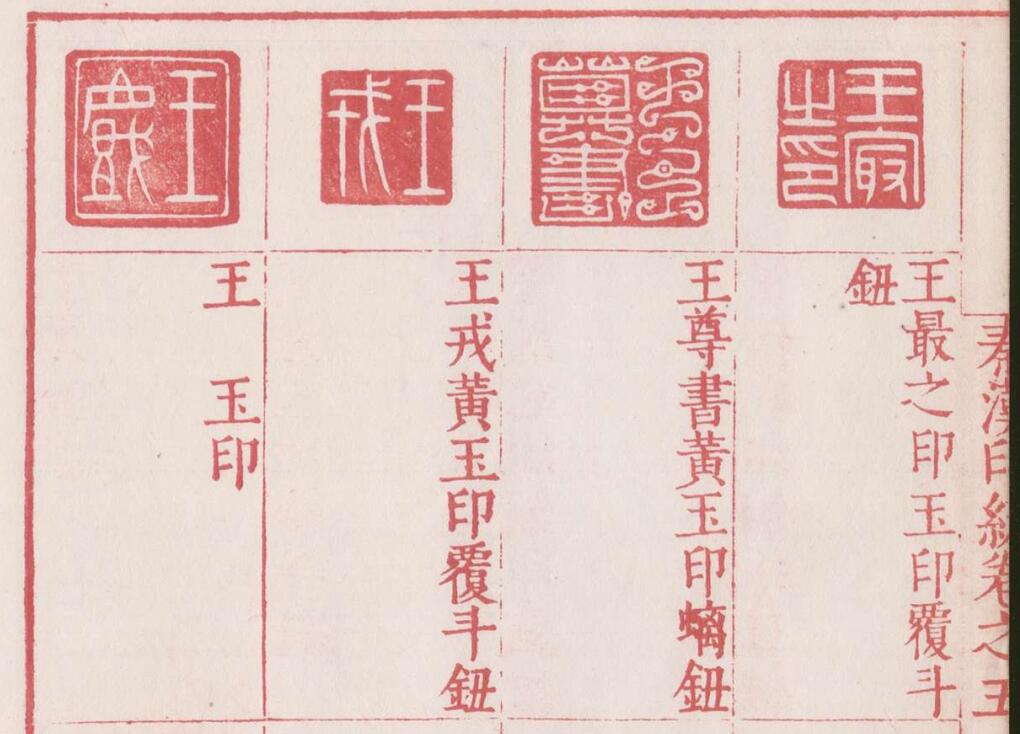 秦漢印統卷之五
王冣之印
王最之印玉印覆斗
鈕
王尊書黃玉印螭鈕
王戎
王戎黃玉印覆斗鈕
王
王　玉印